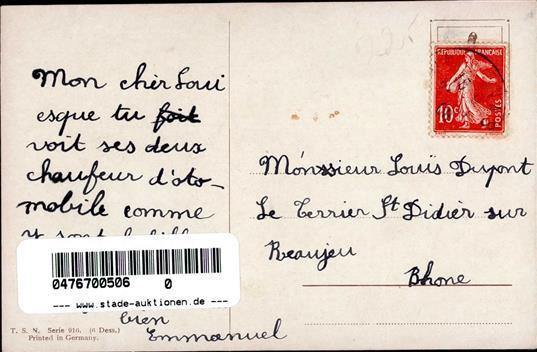 Mon cher Loui
esque tu foit
voit ses deux
chaufeur d'oto-
mobile comme
y sont
bien
Emmanuel
T. S. N. Serie 916. (6 Dess.)
Printed in Germany.
0476700506 0
--- www.stade-auktionen.de ---
REPUBLIQUE FRANÇAISE
10c
POSTES
Monssieur Louis Dupont
Le Terrier St Didier sur
Beaujeu
Rhone